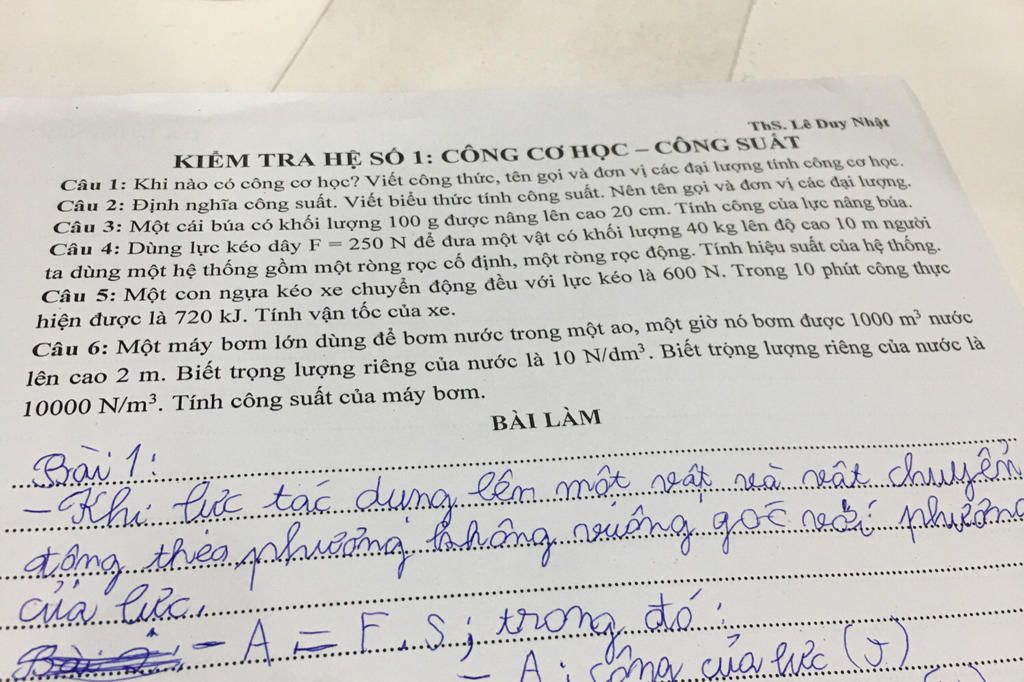 ThS. Lê Duy Nhật
KIỂM TRA HỆ SỐ 1: CÔNG CƠ HỌC – CÔNG SUẤT
Câu 1: Khi nào có công cơ học? Viết công thức, tên gọi và đơn vị các đại lượng tính công cơ học.
Câu 2: Định nghĩa công suất. Viết biểu thức tính công suất. Nên tên gọi và đơn vị các đại lượng.
Câu 3: Một cái búa có khối lượng 100 g được nâng lên cao 20 cm. Tính công của lực nâng búa.
Câu 4: Dùng lực kéo dây F = 250 N để đưa một vật có khối lượng 40 kg lên độ cao 10 m người
ta dùng một hệ thống gồm một ròng rọc cố định, một ròng rọc động. Tính hiệu suất của hệ thống.
Câu 5: Một con ngựa kéo xe chuyển động đều với lực kéo là 600 N. Trong 10 phút công thực
hiện được là 720 kJ. Tính vận tốc của xe.
Câu 6: Một máy bơm lớn dùng để bơm nước trong một ao, một giờ nó bơm được 1000 m³ nước
lên cao 2 m. Biết trọng lượng riêng của nước là 10 N/dm³. Biết trọng lượng riêng của nước là
10000 N/m³. Tính công suất của máy bơm.
BÀI LÀM
Bài 1:
- Khi lực tác dụng lên một vật và vật chuyển
động theo phương không vuông góc với phương
của lực.
- A = F.S; trong đó:
- A: công của lực (J)